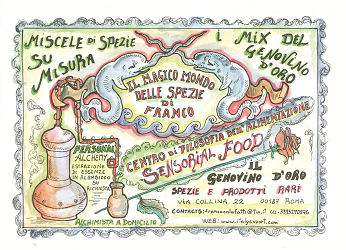 MISCELE DI SPEZIE
SU
MISURA
I MIX DEL
GENOVINO
D'ORO
IL MAGICO MONDO
DELLE SPEZIE
DI
FRANCO
PERSONAL
ALCHEMY
ESTRAZIONE
DI ESSENZE
IN ALAMBICCO
SU
RICHIESTA
ALCHIMISTA A DOMICILIO
CENTRO DI FILOSOFIA DELL'ALIMENTAZIONE
SENSORIAL FOOD
IL
GENOVINO D'ORO
SPEZIE E PRODOTTI RARI
VIA COLLINA 22 00187 ROMA
CONTACTS: